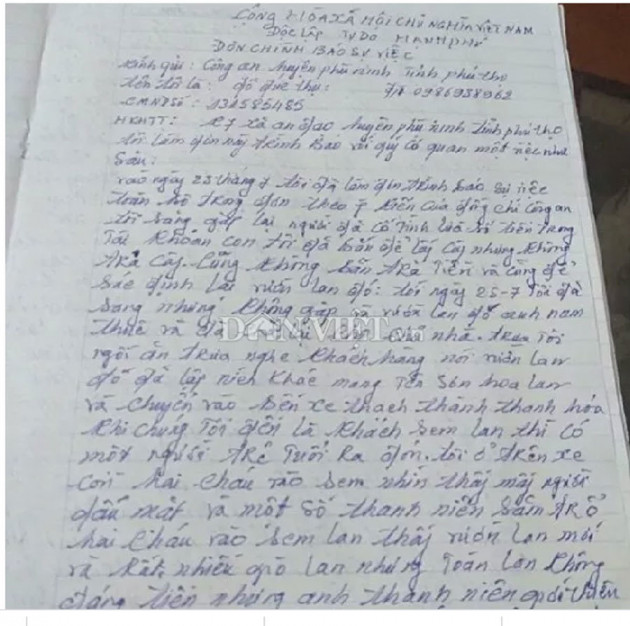 CỘNG HÒA XÃ HỘI CHỦ NGHĨA VIỆT NAM
ĐỘC LẬP TỰ DO HẠNH PHÚC
ĐƠN CHÌNH BÁO SỰ VIỆC
Kính gửi: Công an huyện phù ninh tỉnh phú thọ
tên tôi là: đỗ đức thụ: 0986938962
CMND số: 131585485
HKTT: K7 xã an đạo huyện phù ninh tỉnh phú thọ
tôi làm đơn này trình báo với quý cơ quan một việc như
sau:
vào ngày 23 tháng 7 tôi đã làm đơn trình báo sự việc
toàn bộ trong đơn theo ý kiến của đồng chí công an
tôi sang gặp lại người đã cố tình lừa tiền trong
tài khoản con tôi đã bắn để lấy cây nhưng không
trả cây. Cũng không bắn trả tiền và cũng để
sác định lại vườn lan đó: tôi ngày 25-7 Tôi đã
sang nhưng không gặp và vườn lan đó anh nam
thuê và đã trả lại chủ nhà. trưa Tôi
DÂN VIỆT
ngồi ăn trưa nghe khách hàng nói vườn lan
đó đã lập ních khác mang Tên Sơn hoa lan
và chuyển vào bến xe thạch thành thanh hóa
khi chúng Tôi đến là khách sem lan thì có
một người trẻ Tuổi ra đón. tôi ở trên xe
con hai cháu vào sem nhìn thấy mấy người
dấu mặt và một số thanh niên săm trổ
hai cháu vào sem lan thấy vườn lan mới
và rất nhiều giò lan nhưng toàn lan không
đáng tiền nhưng anh thanh niên giới thiệu